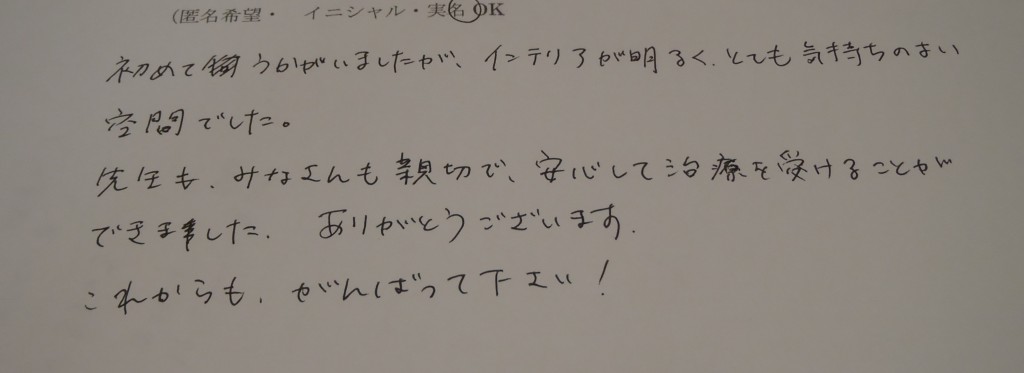 (匿名希望・ イニシャル・実名)OK
初めて うかがいましたが、インテリアが明るく、とても気持ちのよい
空間でした。
先生も、みなさんも親切で、安心して治療を受けることが
できました. ありがとうございます.
これからも、がんばって下さい!